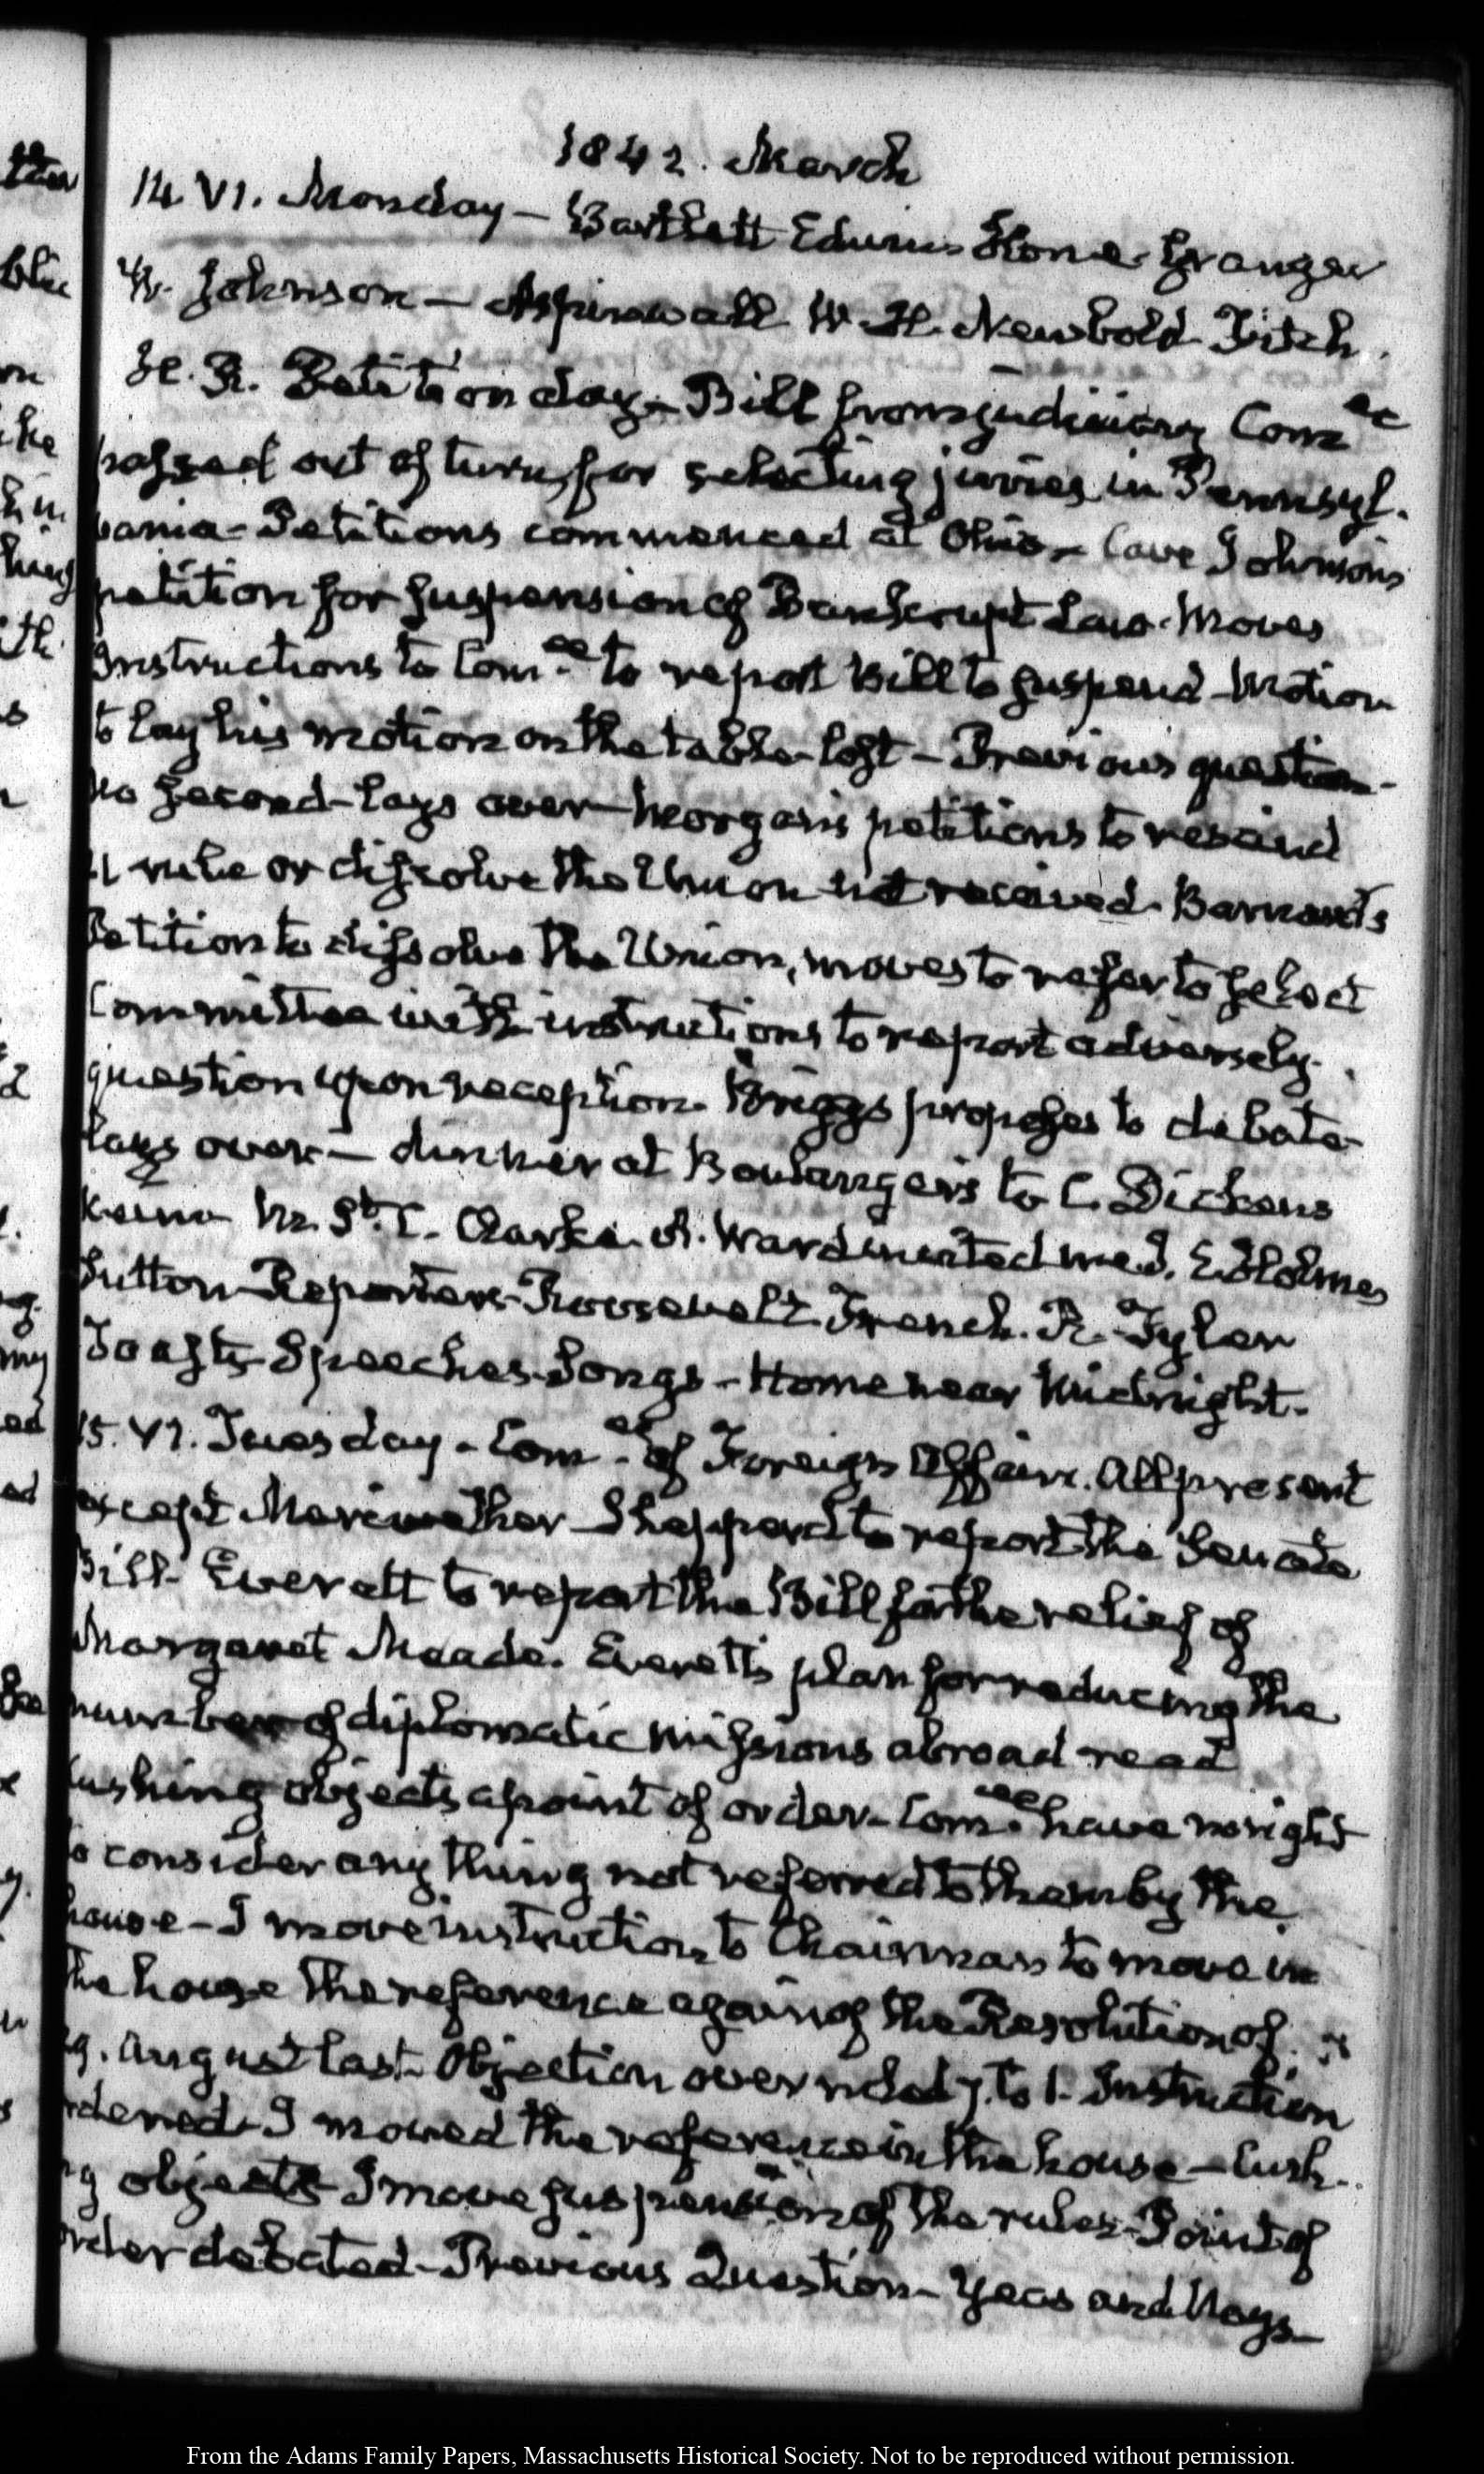 1842. March
14. VI. Monday — Bartlett Edwin Stone Granger
W. Johnson — Aspinwall W. H. Newbold Fitch.
H. R. Petition day — Bill from judiciary Com.ee
passed out of turn, for selecting juries in Pennsyl-
vania — Petitions commenced at Ohio — Cave Johnson's
petition for suspension of Bankrupt Law. Moves
Instructions to Com.ee to report Bill to suspend — Motion
to lay his motion on the table lost — Previous question —
no second — lays over — Morgan's petitions to rescind
21 rule or dissolve the Union not received. Barnard's
Petition to dissolve the Union, moves to refer to select
Committee with instructions to report adversely.
question upon reception. Briggs proposes to debate
lays over — dinner at Boulanger's to C. Dickens
Keim M. St. C. Clarke. A. Ward invited me J. E. Holmes
Sutton Reporters Roosevelt French. R. Tyler
Toasts Speeches Songs — Home near Midnight.
15. VI. Tuesday — Com.ee of Foreign Affairs. All present
except Meriwether — Shepperd to report the Senate
Bill. Everett to report the Bill for the relief of
Margaret Meade. Everett's plan for reducing the
number of diplomatic missions abroad read
Cushing objects a point of order — Com.ee have no right
to consider any thing not referred to them by the
house — I move instruction to Chairman to move in
the house the reference again of the Resolution of
29. August last. Objection overruled 7. to 1. Instruction
ordered. I moved the reference in the house — Cush-
ing objects I move suspension of the rules. Point of
order debated — Previous Question — Yeas and Nays —
From the Adams Family Papers, Massachusetts Historical Society. Not to be reproduced without permission.